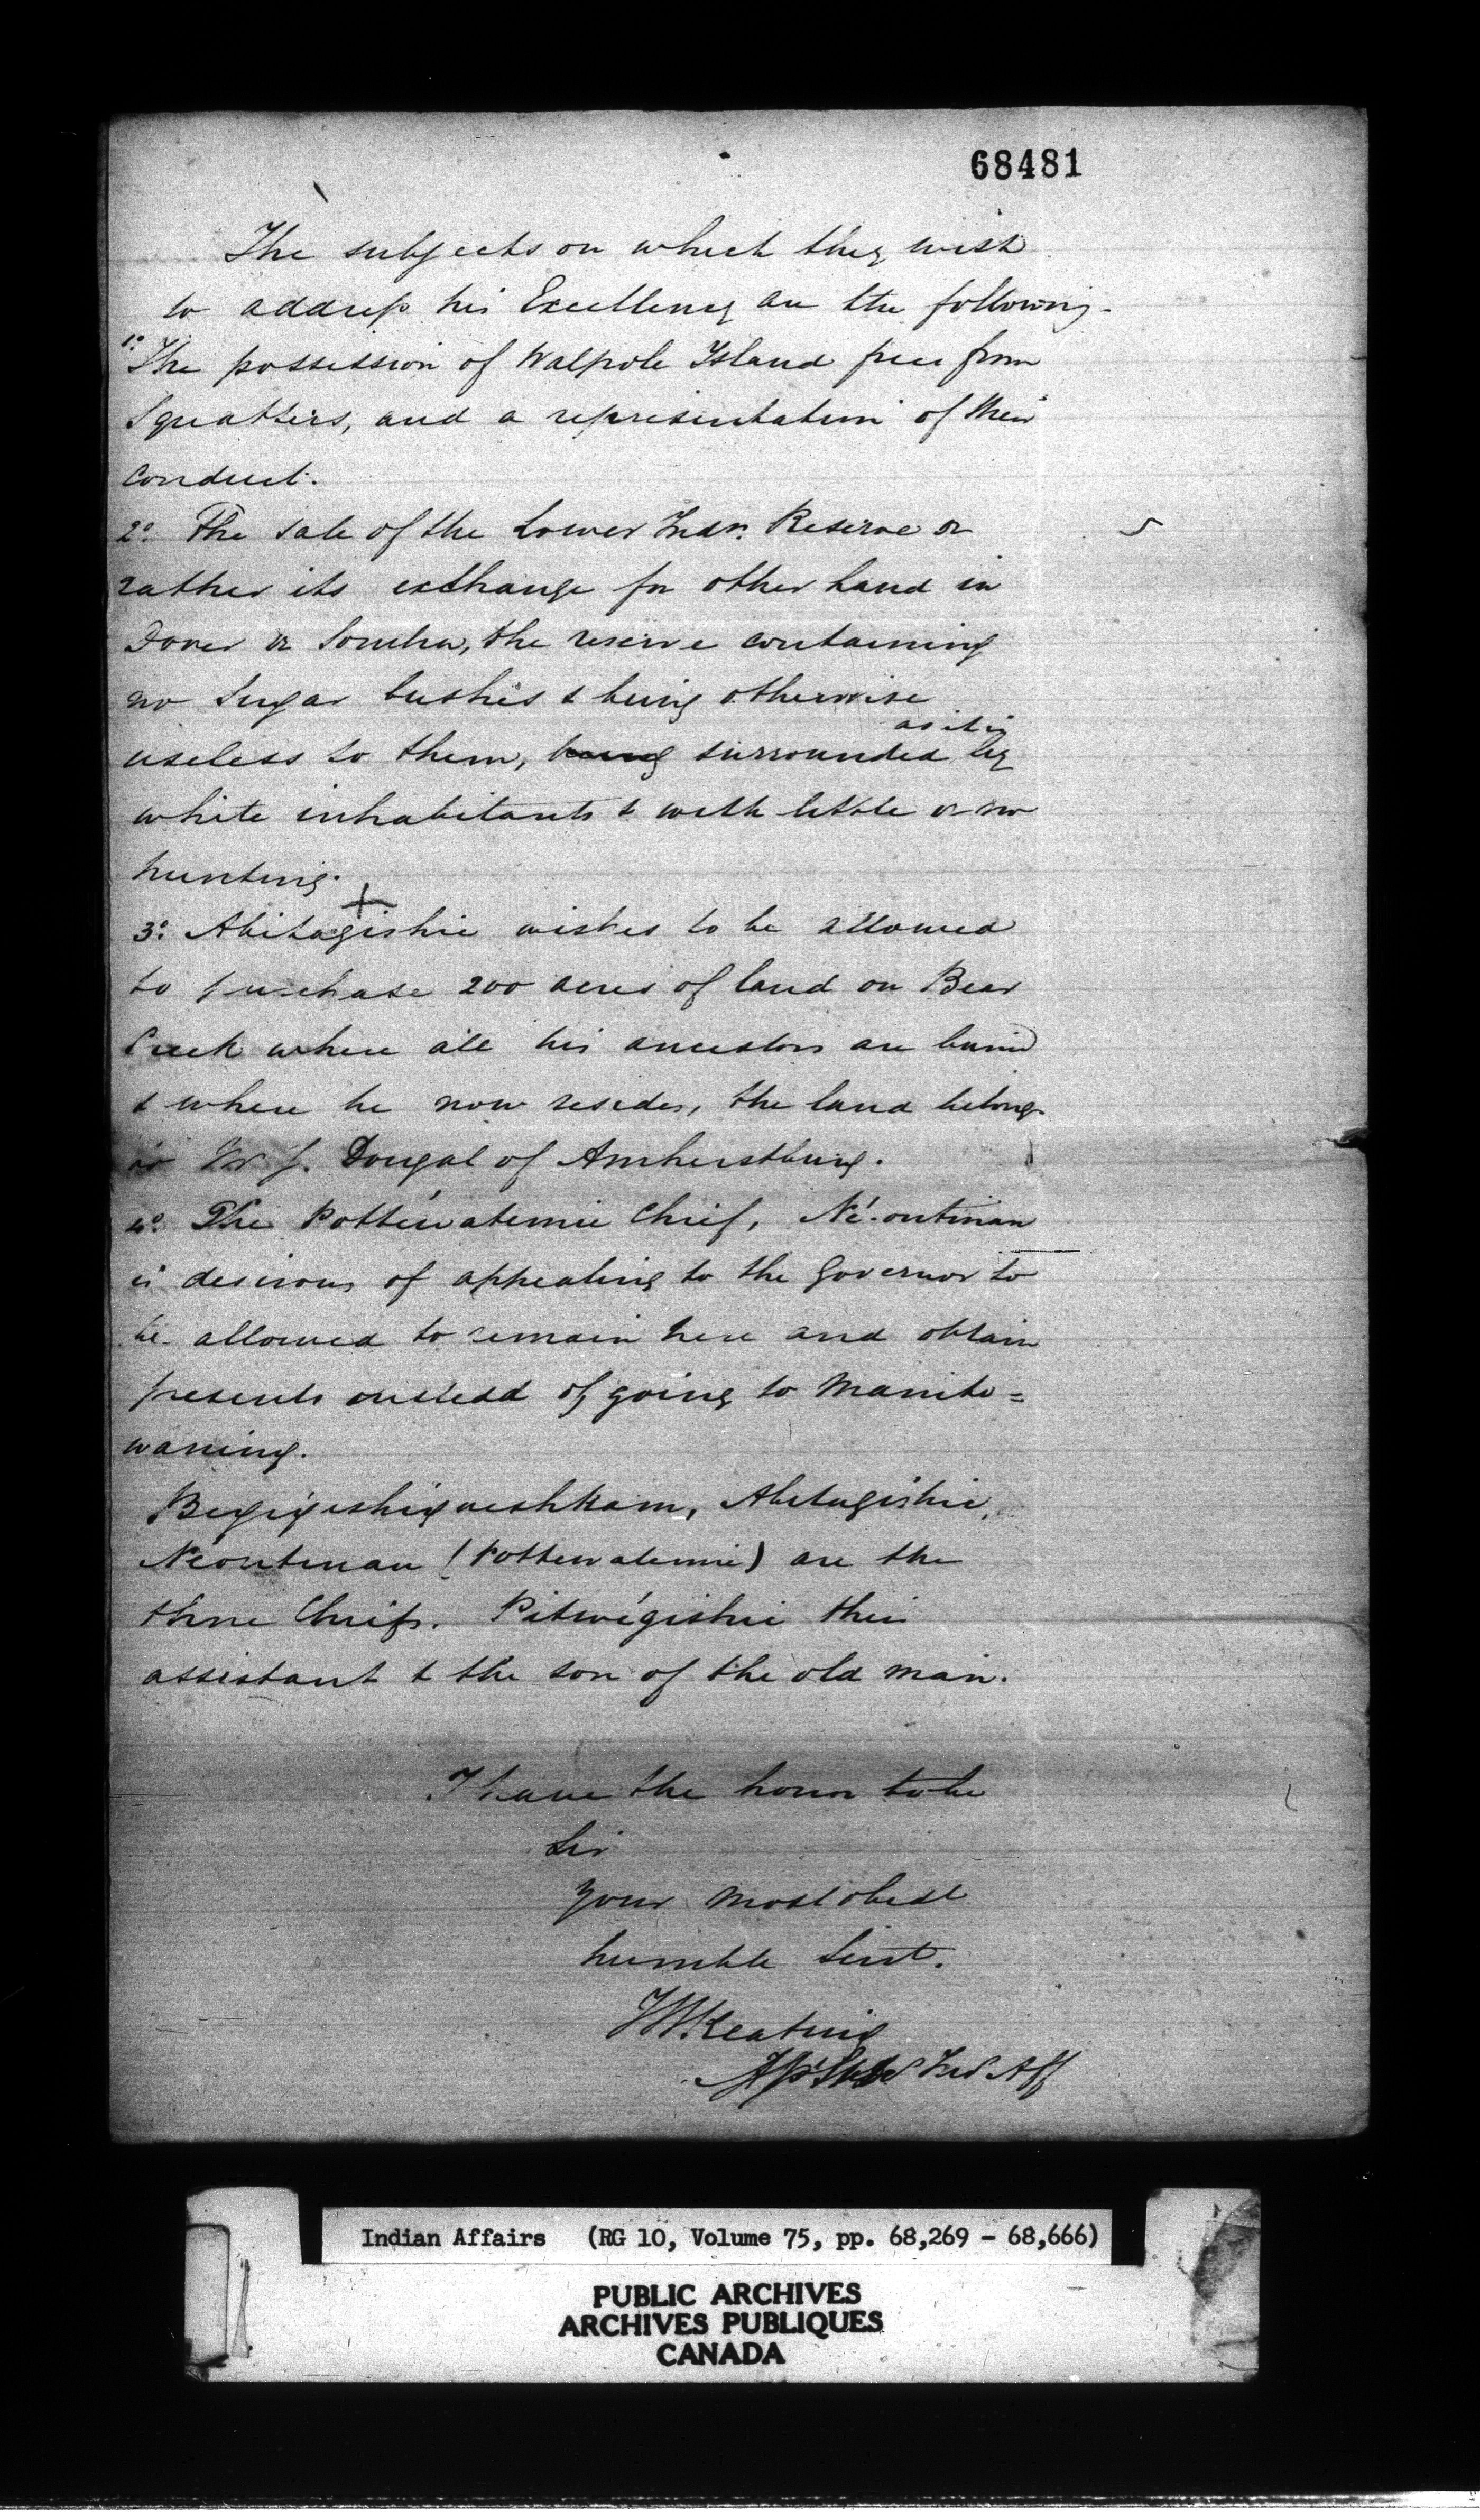 68481
The subjects on which they wish
to address his Excellency are the following.
1º. The possession of Walpole Island free from
Squatters, and a representation of their
conduct.
2º. The sale of the Lower Indn. Reserve or
rather its exchange for other Land in
Dover or Sombra, the reserve containing
no Sugar bushes & being otherwise
as it is
useless to them, being surrounded by
white inhabitants & with little or no
hunting.
3º. Abitagishie wishes to be allowed
to purchase 200 acres of land on Bear
Creek where all his ancestors are buried
& where he now resides, the land belongs
to J. Dougal of Amherstburg.
4º. The Pottewatemie Chief, Né-outinan
is desirous of appealing to the Governor to
be allowed to remain here and obtain
presents instead of going to Manito=
waning.
Begigishigueshkam, Abitagishie,
Néoutinau (Pottewatemie) are the
three Chiefs. Pitwégishie their
assistant & the son of the old man.
I have the honor to be
Sir
Your most obedt
humble Servt.
JW Keating
Ind Aff
Indian Affairs (RG 10, Volume 75, pp. 68,269 - 68,666)
PUBLIC ARCHIVES
ARCHIVES PUBLIQUES
CANADA